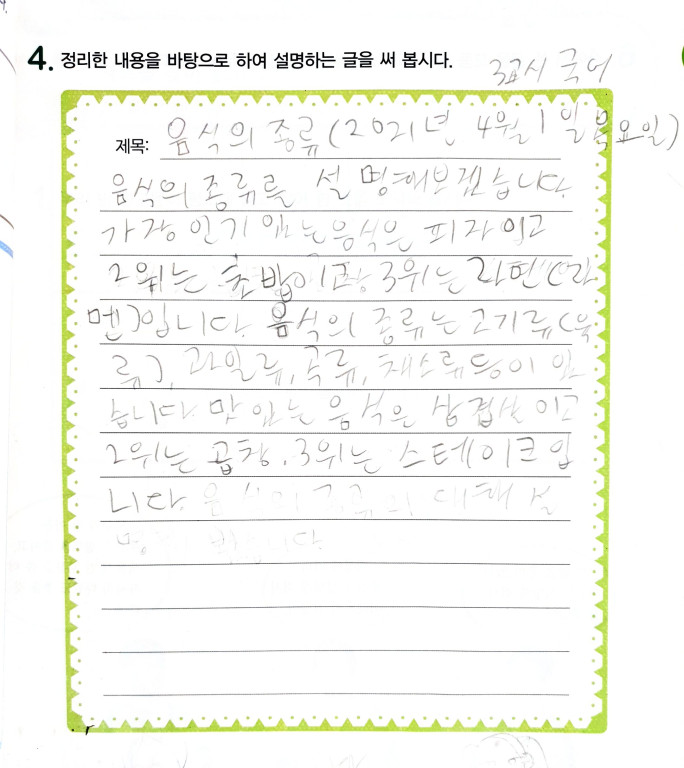 4. 정리한 내용을 바탕으로 하여 설명하는 글을 써 봅시다.
3교시 국어
제목: 음식의 종류(2021년 4월 1일 목요일)
음식의 종류를 설명해보겠습니다.
가장 인기 있는 음식은 피자이고
2위는 초밥이고, 3위는 라면(라
멘)입니다. 음식의 종류는 고기류(육
류), 과일류, 곡류, 채소류 등이 있
습니다. 맛있는 음식은 삼겹살이고
2위는 곱창, 3위는 스테이크입
니다. 음식의 종류의 대해 설